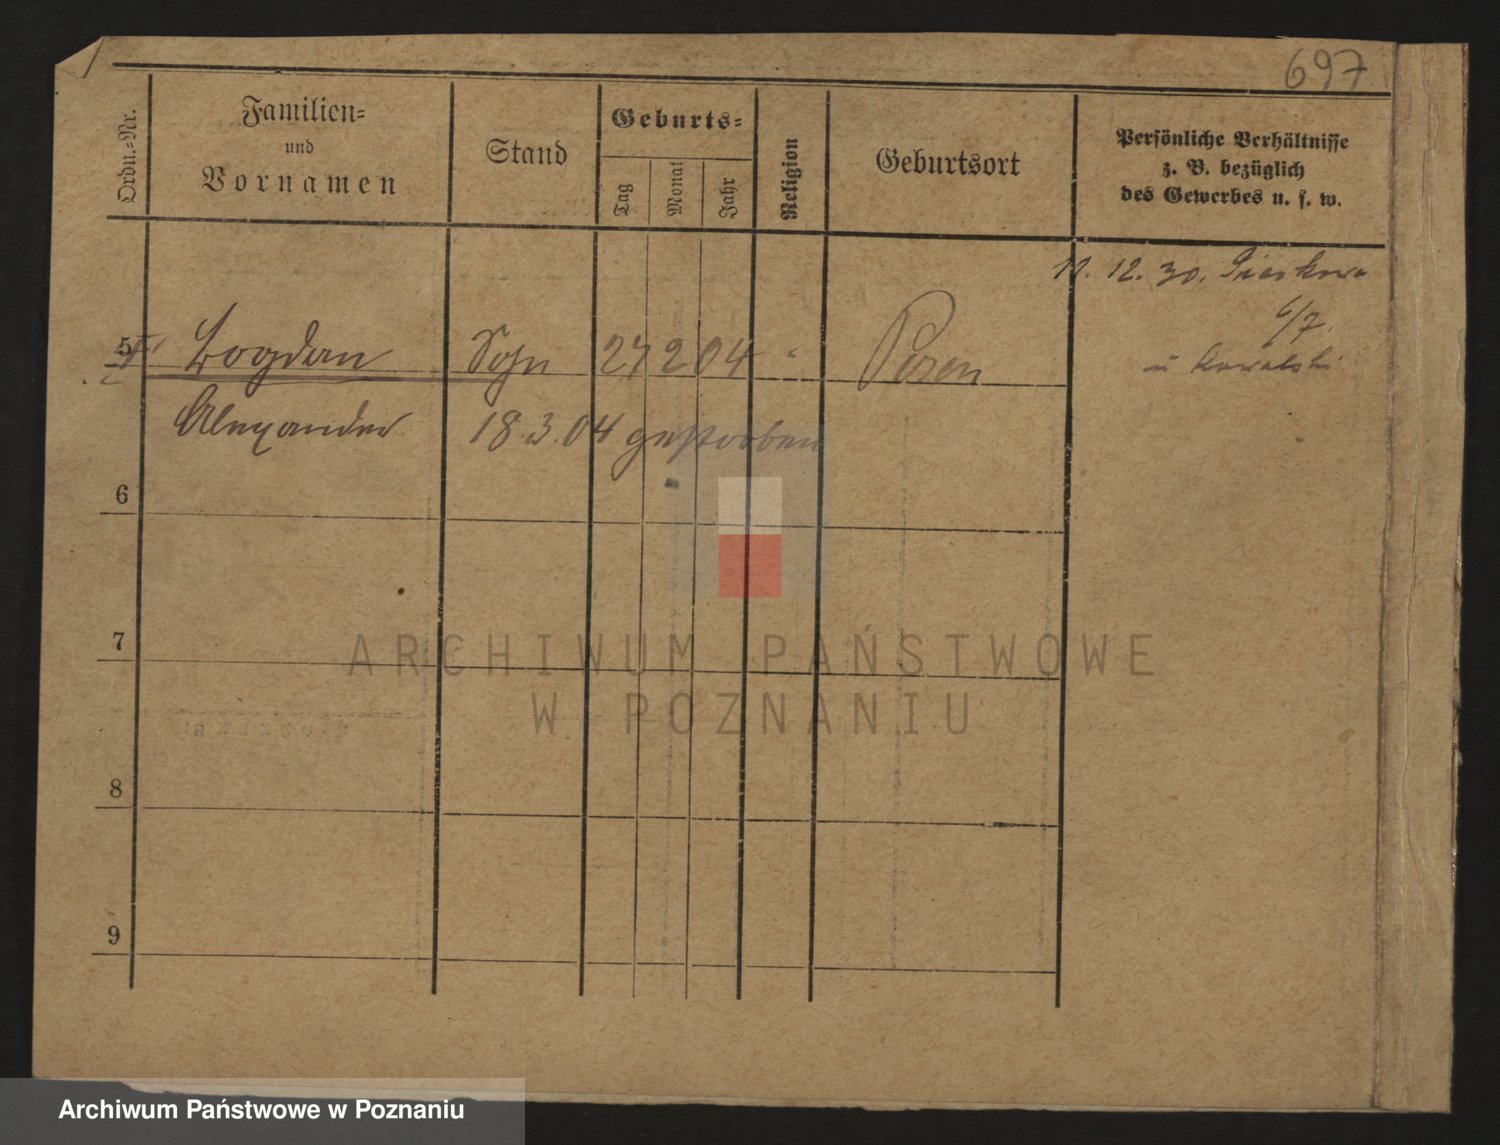 697
Ordn.-Nr.
Familien-
und
Vornamen
Stand
Geburts-
Tag
Monat
Jahr
Religion
Geburtsort
Persönliche Verhältnisse
z. B. bezüglich
des Gewerbes u. s. w.
12. 30.
6/7.
5 Bogdan Sohn 27 2 04 " Posen
u Kowalski
Alexander 18.3.04 gestorben
6
7
8
9
ARCHIWUM PAŃSTWOWE
W POZNANIU
Archiwum Państwowe w Poznaniu